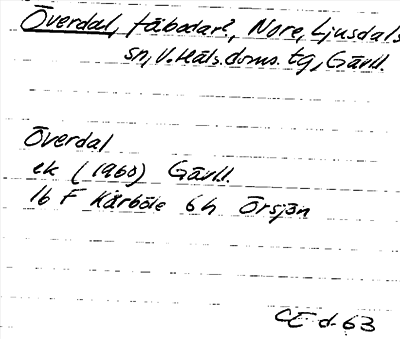 Överdal, fäbodar?, Nore, Ljusdals
sn, V. Häls. doms. tg, Gävl.
Överdal
ek (1960) Gävl.
16 F Kårböle 6h Örsjön
CE d. 63